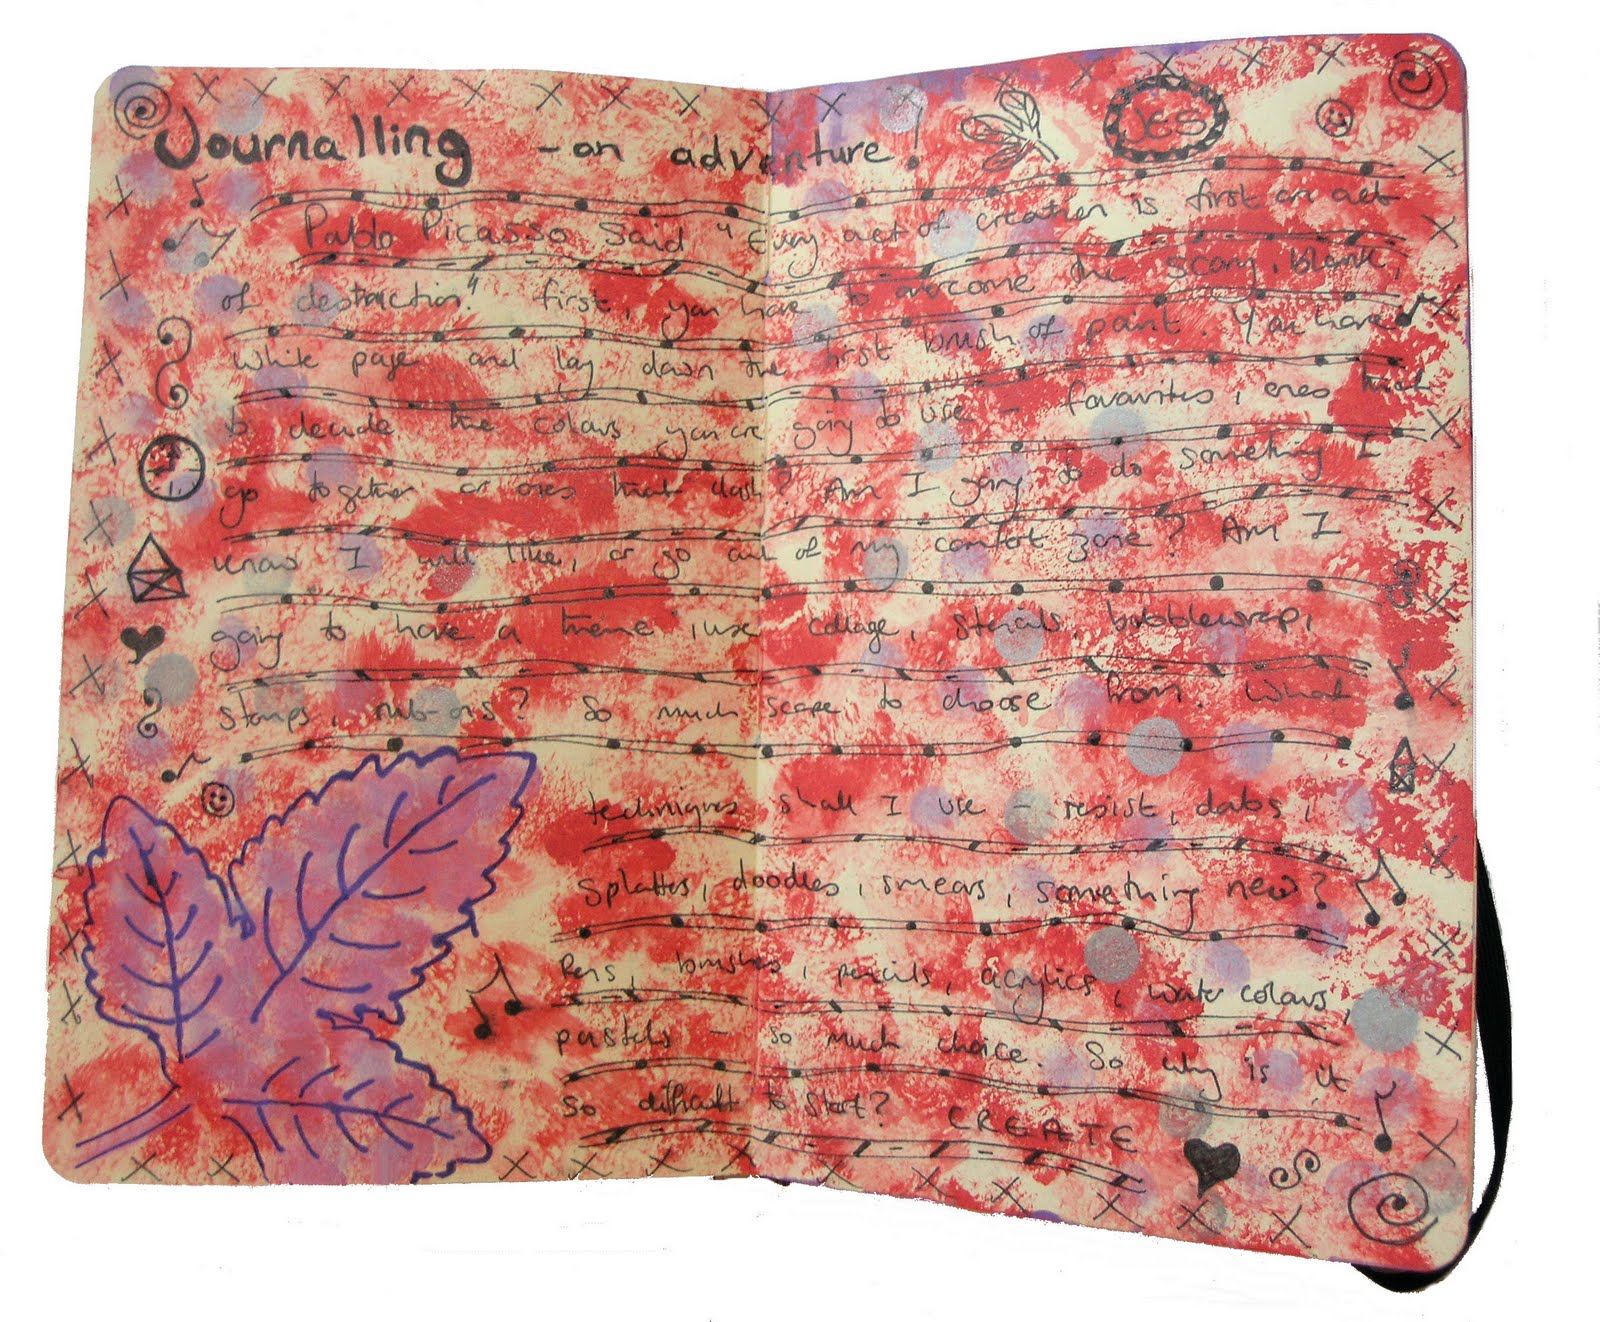 Journalling - an adventure! JES
Pablo Picasso said "Every act of creation is first an act
of destruction." first, you have to overcome the scary, blank,
white page and lay down the first brush of paint. You have
to decide the colours you are going to use - favourites, ones that
go together or ones that clash? Am I going to do something I
know I will like, or go out of my comfort zone? Am I
going to have a theme, use collage, stencils, bubblewrap,
stamps, rub-ons? So much scope to choose from. What
techniques shall I use - resist, dabs,
splatters, doodles, smears, something new?
Pens, brushes, pencils, acrylics, water colours,
pastels - so much choice. So why is it
so difficult to start? CREATE